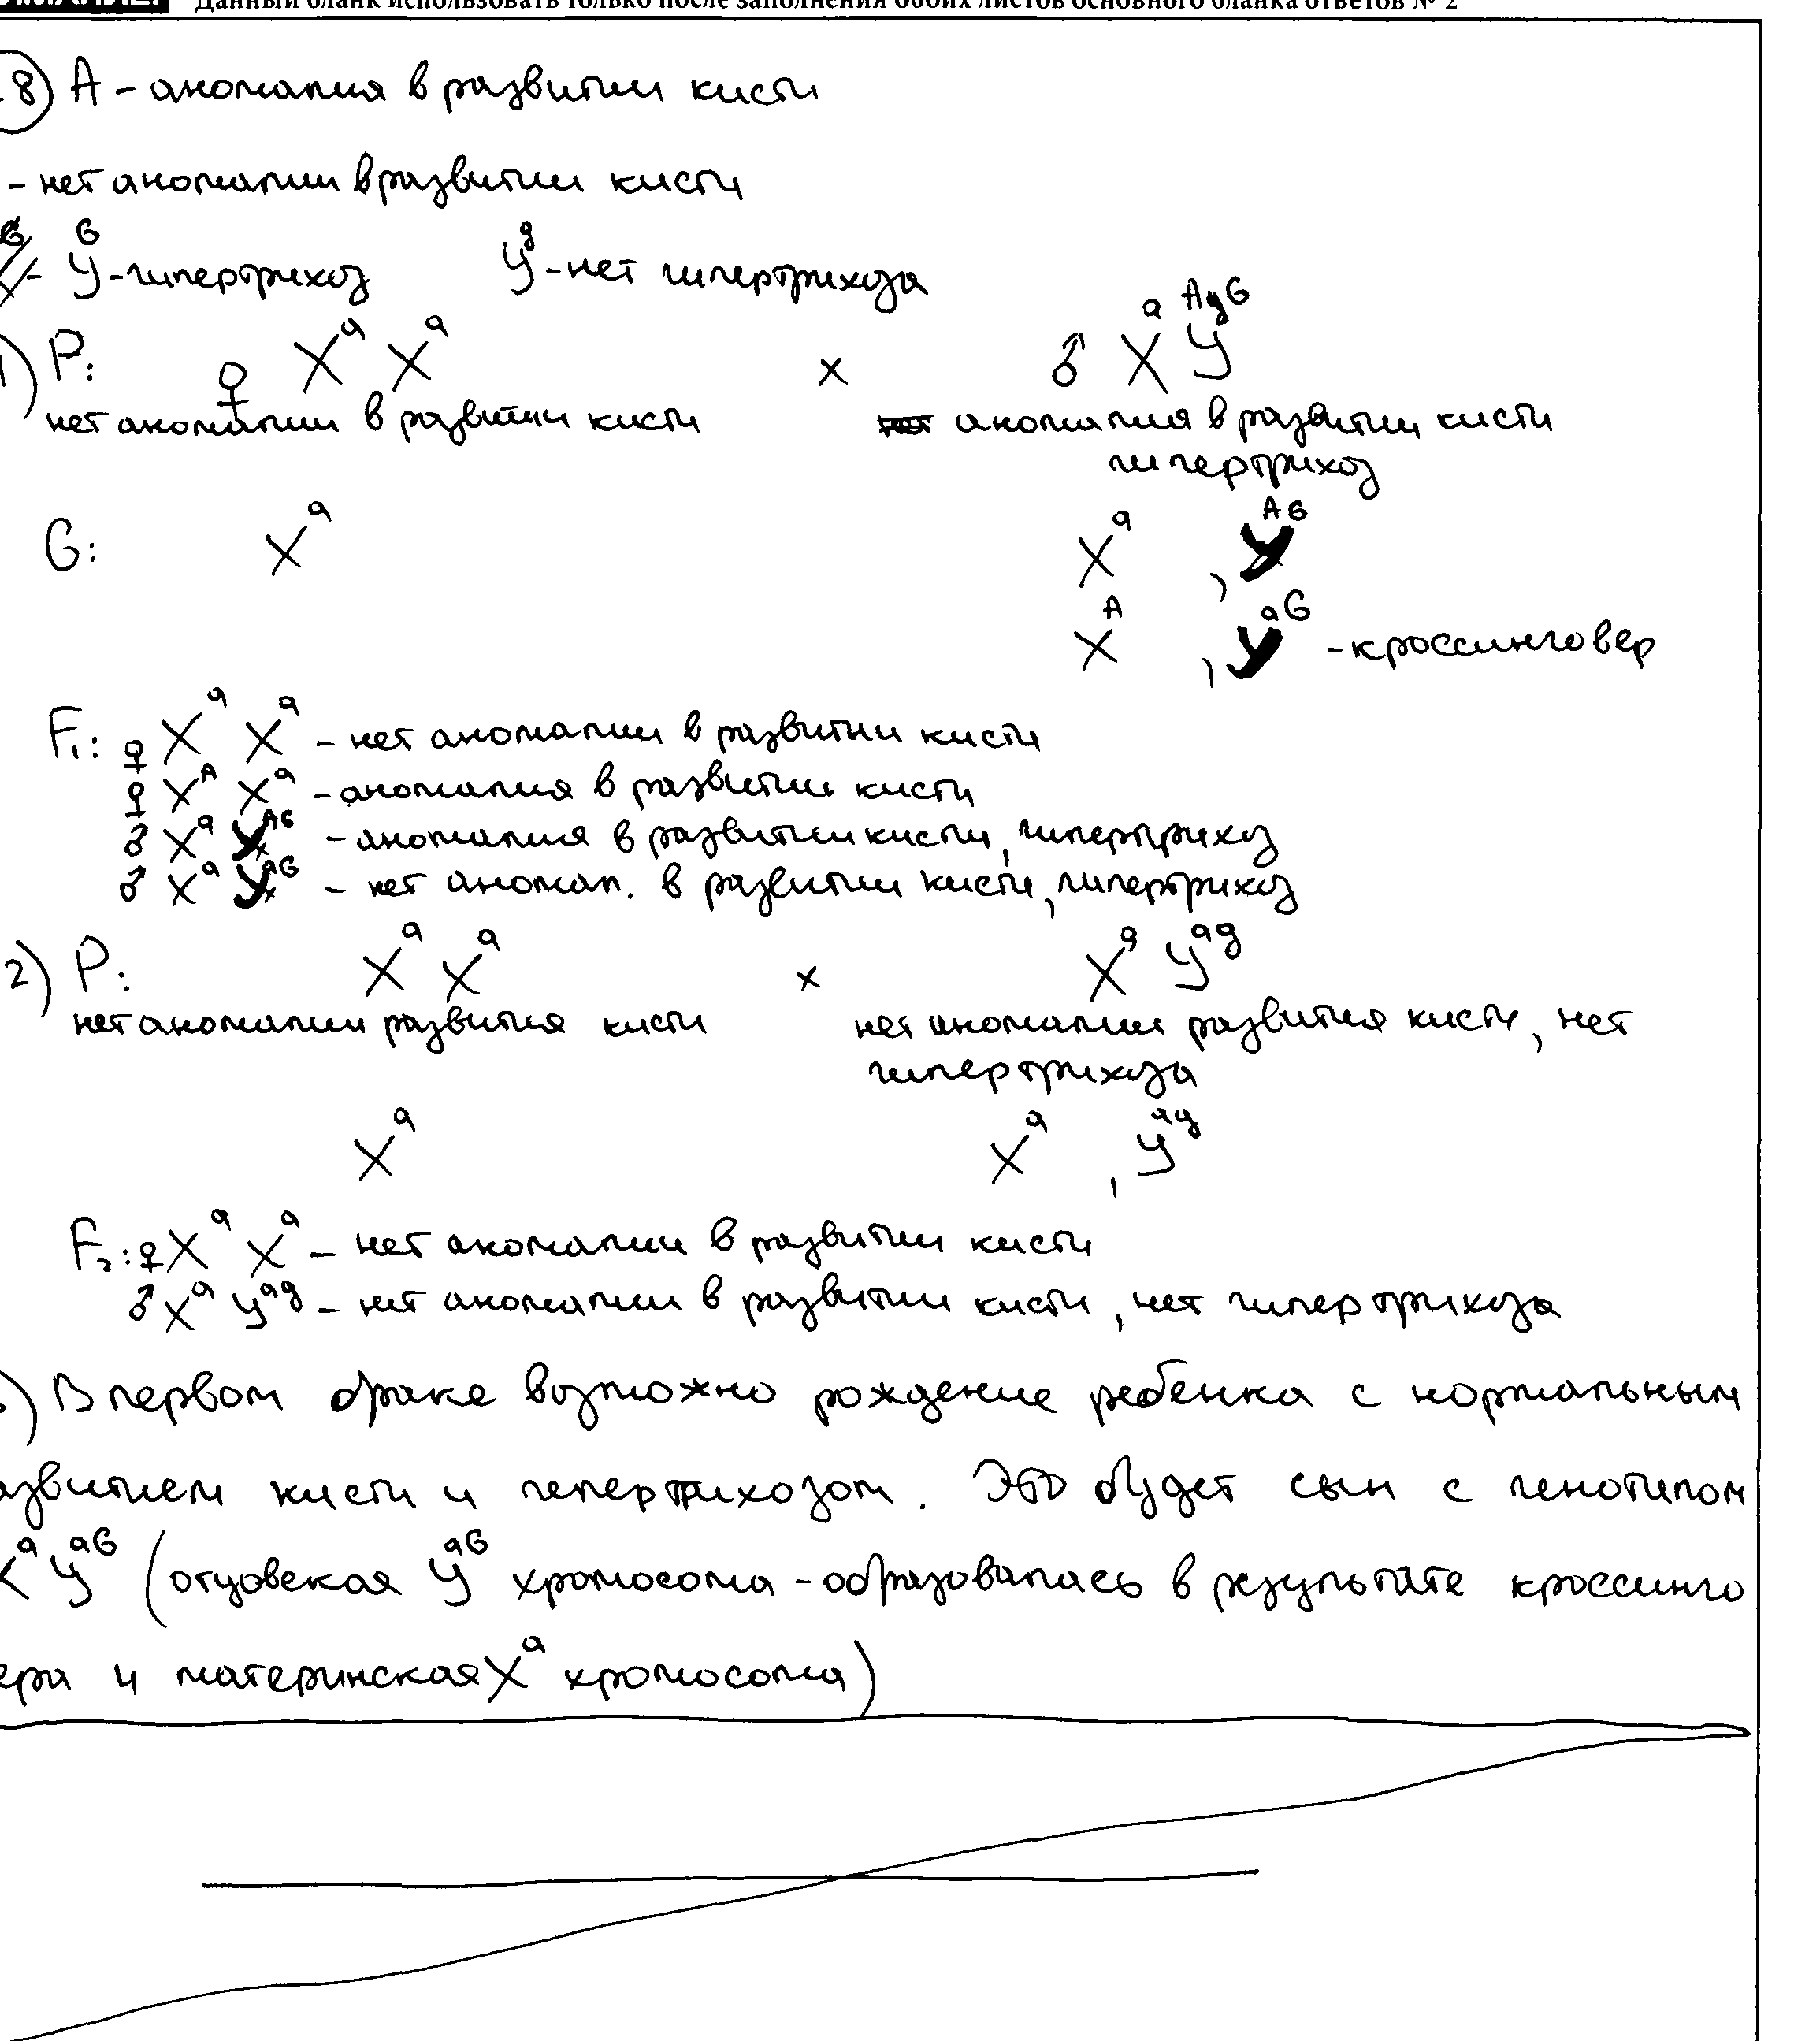 Данный бланк использовать только после заполнения обоих листов основного бланка ответов № 2
8) А - аномалия в развитии кисти
- нет аномалии в развитии кисти
Y^G - гипертрихоз Y^g - нет гипертрихоза
1) P: ♀ X^a X^a x ♂ X^a Y^AG
нет аномалии в развитии кисти аномалия в развитии кисти
гипертрихоз
G: X^a X^a , Y^AG
X^A , Y^aG - кроссинговер
F₁: ♀ X^a X^a - нет аномалии в развитии кисти
♀ X^A X^a - аномалия в развитии кисти
♂ X^a Y^AG - аномалия в развитии кисти, гипертрихоз
♂ X^a Y^aG - нет аномал. в развитии кисти, гипертрихоз
2) P: X^a X^a x X^a Y^ag
нет аномалии развития кисти нет аномалии развития кисти, нет
гипертрихоза
X^a X^a , Y^ag
F₂: ♀ X^a X^a - нет аномалии в развитии кисти
♂ X^a Y^ag - нет аномалии в развитии кисти, нет гипертрихоза
) В первом браке возможно рождение ребенка с нормальным
азвитием кисти и гепертрихозом. Это будет сын с генотипом
X^a Y^aG (отцовская Y^aG хромосома - образовалась в результате кроссинго
ера и материнская X^a хромосома)